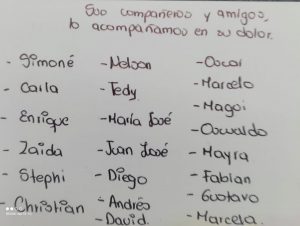 Sus compañeros y amigos,
lo acompañamos en su dolor.
- Simoné
- Carla
- Enrique
- Zaida
- Stephi
- Christian
- Nelson
- Tedy
- María José
- Juan José
- Diego
- Andrés
- David
- Oscar
- Marcelo
- Magoi
- Oswaldo
- Mayra
- Fabian
- Gustavo
- Marcela.